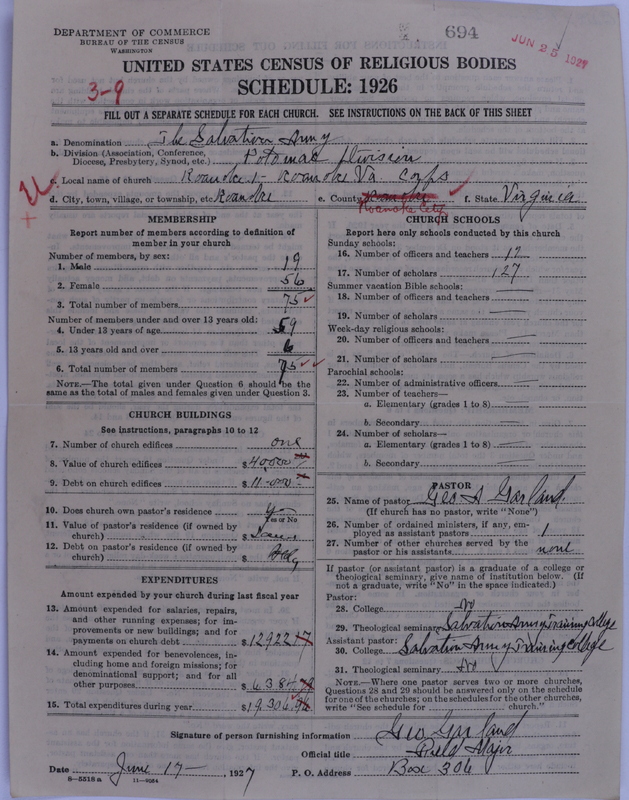 DEPARTMENT OF COMMERCE
BUREAU OF THE CENSUS
WASHINGTON
694
JUN 25 1927
UNITED STATES CENSUS OF RELIGIOUS BODIES
SCHEDULE: 1926
3-9
FILL OUT A SEPARATE SCHEDULE FOR EACH CHURCH. SEE INSTRUCTIONS ON THE BACK OF THIS SHEET
a. Denomination The Salvation Army
b. Division (Association, Conference, Diocese, Presbytery, Synod, etc.) Potomac Division
c. Local name of church Roanoke 1- Roanoke Va. Corps
d. City, town, village, or township, etc. Roanoke e. County Roanoke City f. State Virginia
MEMBERSHIP
Report number of members according to definition of
member in your church
Number of members, by sex:
1. Male 19
2. Female 56
3. Total number of members 75
Number of members under and over 13 years old:
4. Under 13 years of age 59
5. 13 years old and over 6
6. Total number of members 75
NOTE.—The total given under Question 6 should be the
same as the total of males and females given under Question 3.
CHURCH BUILDINGS
See instructions, paragraphs 10 to 12
7. Number of church edifices one
8. Value of church edifices $ 40,000
9. Debt on church edifices $ 11-000
10. Does church own pastor's residence?
Yes or No
11. Value of pastor's residence (if owned by
church) $
12. Debt on pastor's residence (if owned by
church) $
EXPENDITURES
Amount expended by your church during last fiscal year
13. Amount expended for salaries, repairs,
and other running expenses; for im-
provements or new buildings; and for
payments on church debt $ 12922
14. Amount expended for benevolences, in-
cluding home and foreign missions; for
denominational support; and for all
other purposes $ 6384
15. Total expenditures during year $ 19306
CHURCH SCHOOLS
Report here only schools conducted by this church
Sunday schools:
16. Number of officers and teachers 17
17. Number of scholars 127
Summer vacation Bible schools:
18. Number of officers and teachers
19. Number of scholars
Week-day religious schools:
20. Number of officers and teachers
21. Number of scholars
Parochial schools:
22. Number of administrative officers
23. Number of teachers—
a. Elementary (grades 1 to 8)
b. Secondary
24. Number of scholars—
a. Elementary (grades 1 to 8)
b. Secondary
PASTOR
25. Name of pastor Geo A Garland
(If church has no pastor, write "None")
26. Number of ordained ministers, if any, em-
ployed as assistant pastors 1
27. Number of other churches served by the
pastor or his assistants none
If pastor (or assistant pastor) is a graduate of a college or
theological seminary, give name of institution below. (If
not a graduate, write "No" in the space indicated.)
Pastor:
28. College No
29. Theological seminary Salvation Army Training College
Assistant pastor:
30. College Salvation Army Training College
31. Theological seminary No
NOTE.—Where one pastor serves two or more churches,
Questions 28 and 29 should be answered only on the schedule
for one of the churches; on the schedules for the other churches,
write "See schedule for church."
Signature of person furnishing information Geo Garland
Official title Field Major
Date June 17- 1927 P. O. Address Box 306
8-5518 a 11-9034